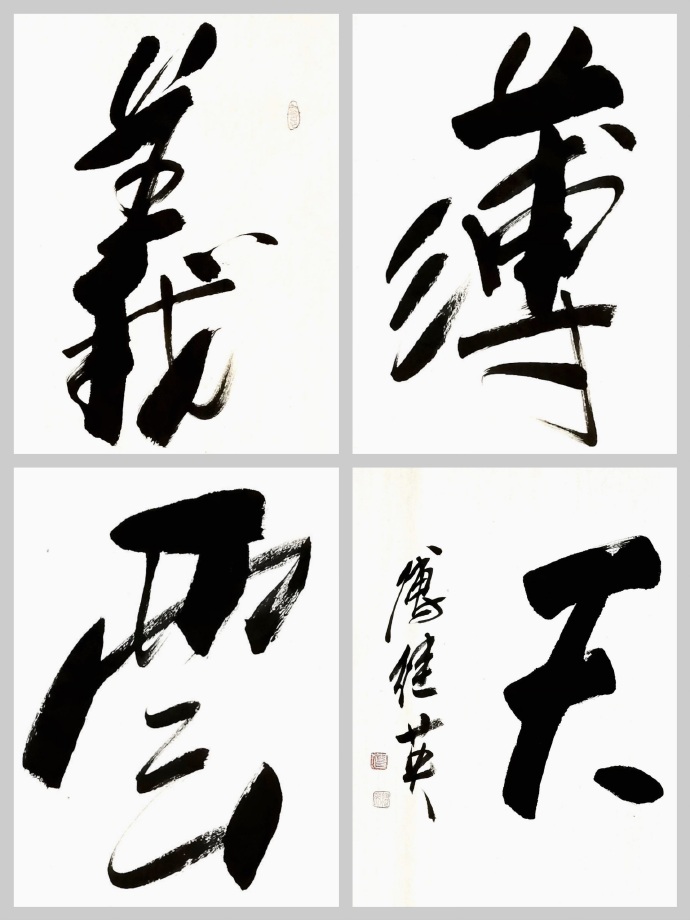 義
薄
雲
天
傅继英